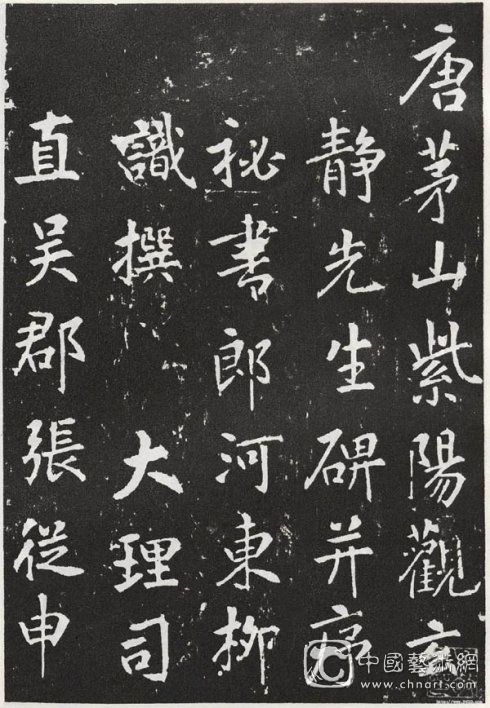 唐茅山紫陽觀玄
靜先生碑并序
祕書郎河東柳
識撰 大理司
直吳郡張從申
中國藝術網
www.chnart.com